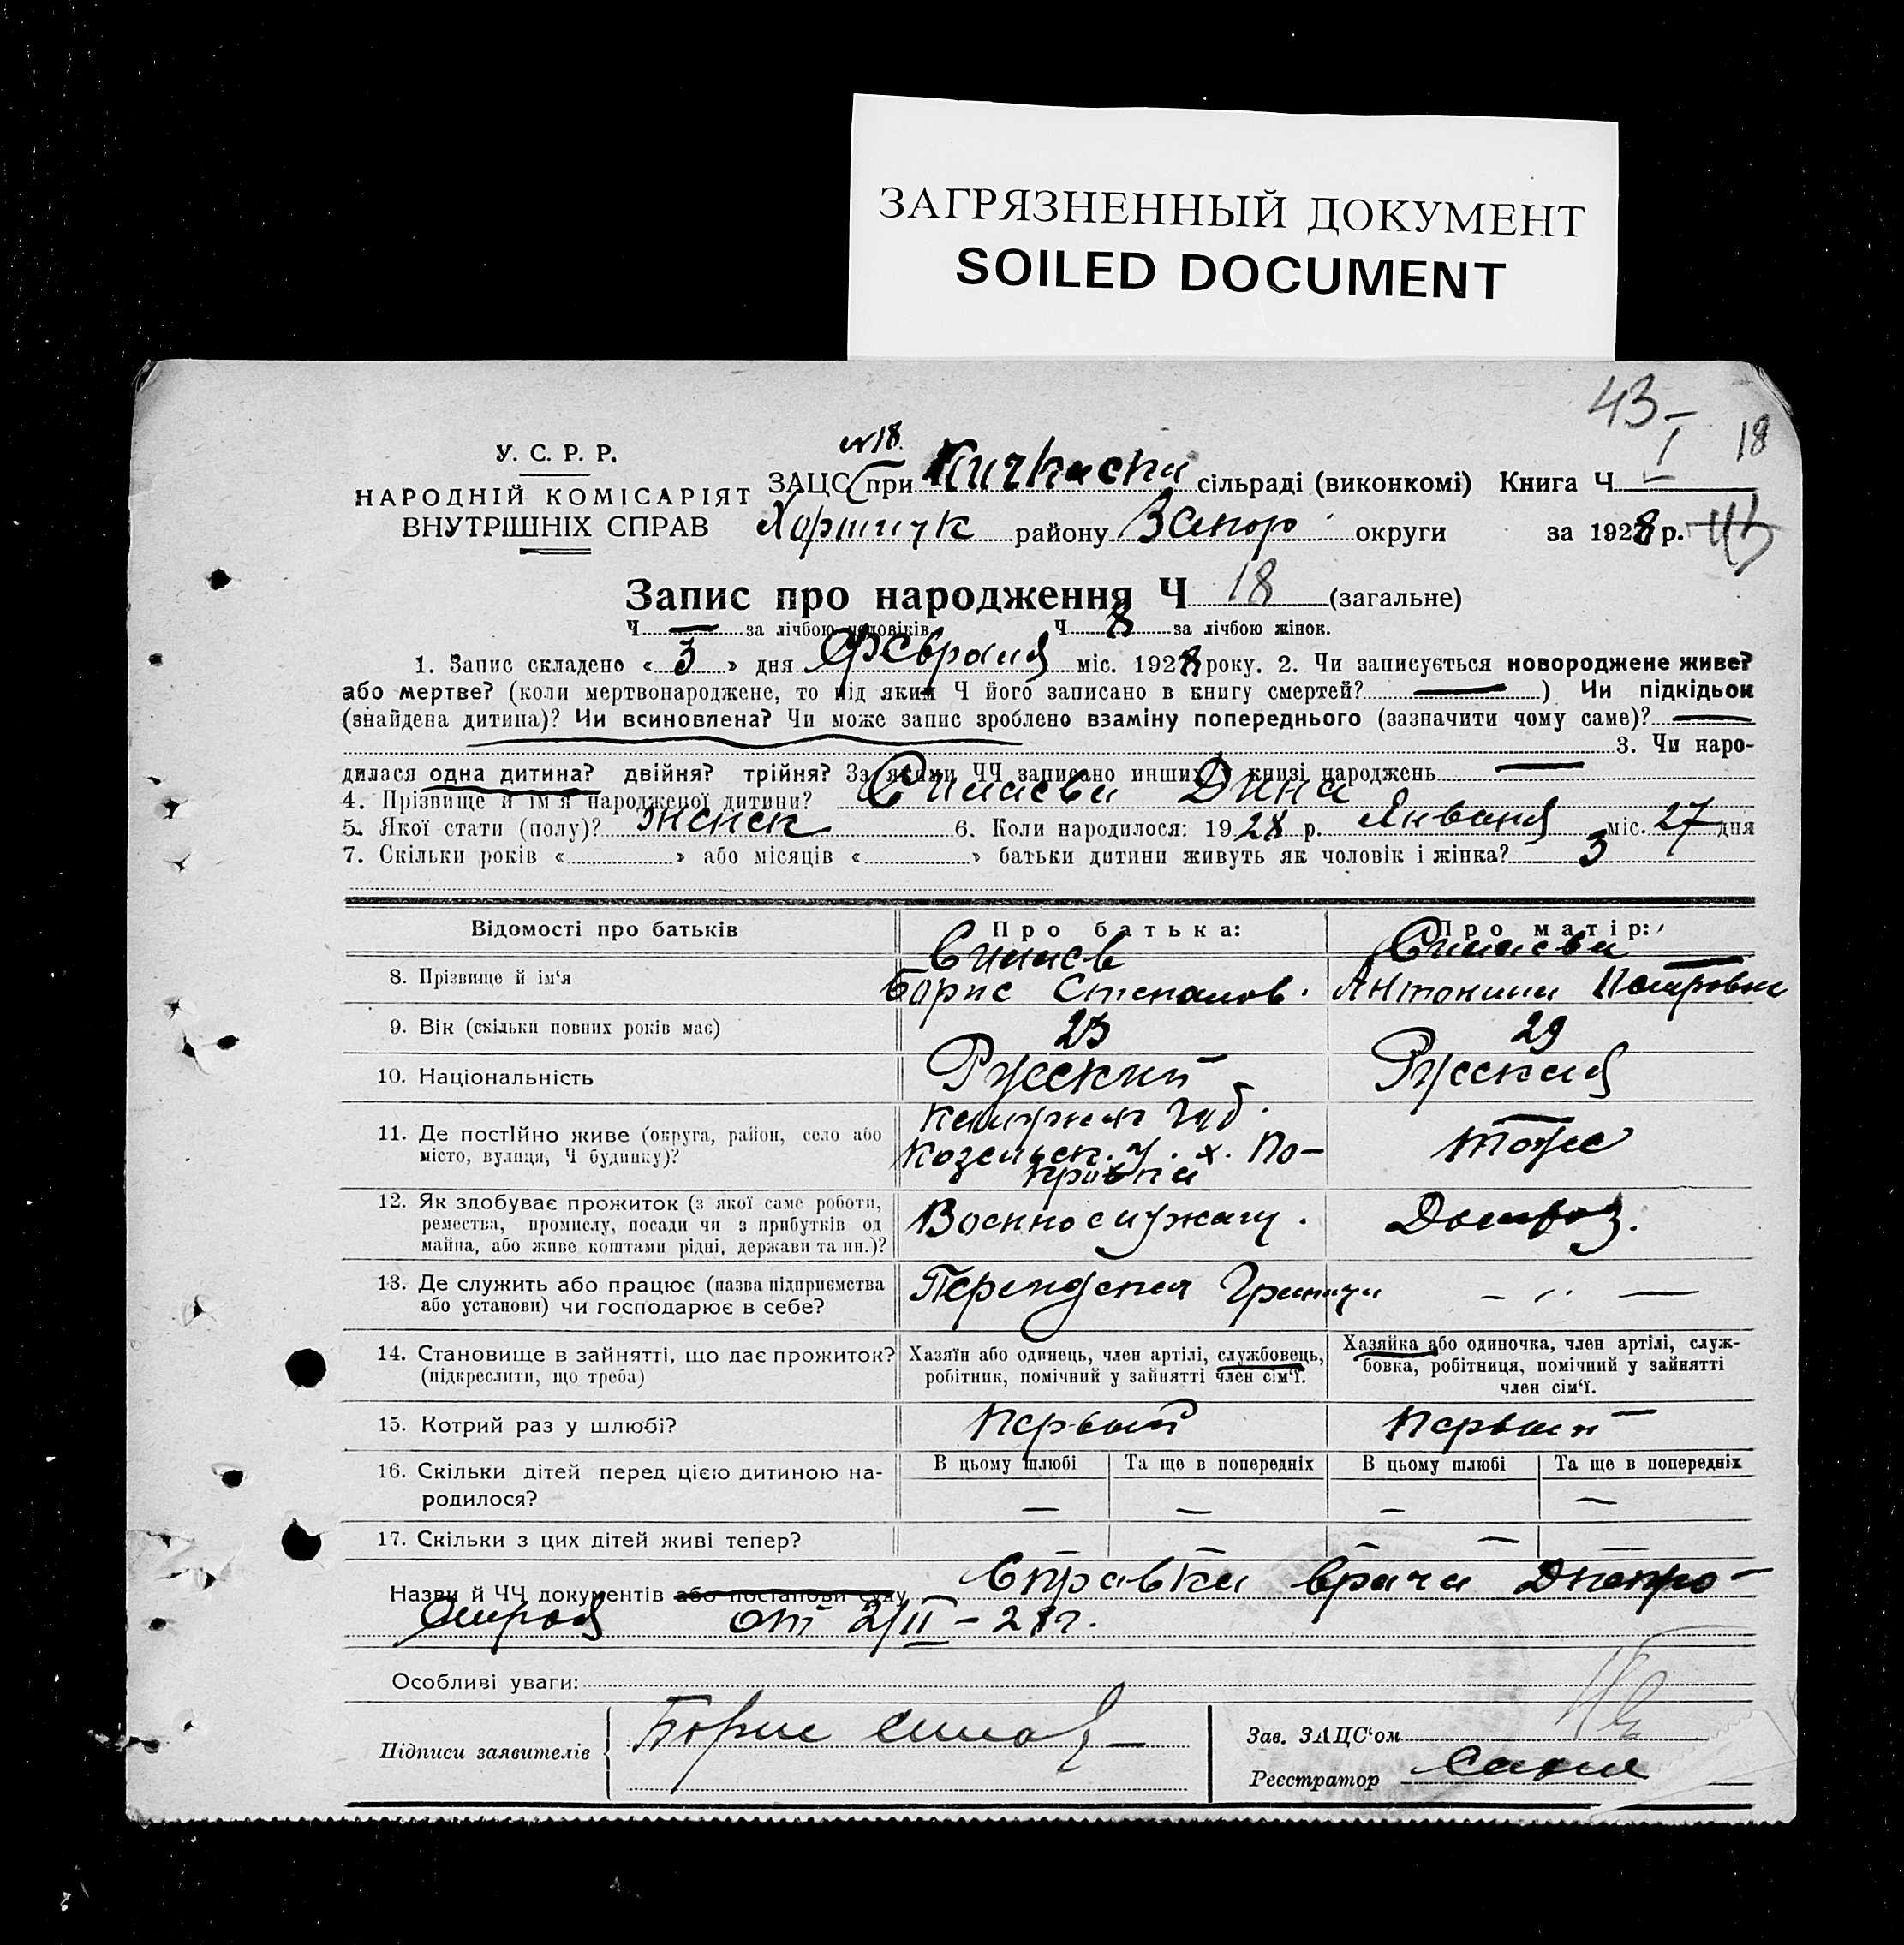 ЗАГРЯЗНЕННЫЙ ДОКУМЕНТ
SOILED DOCUMENT
43
I 18
У. С. Р. Р.
НАРОДНІЙ КОМІСАРІЯТ
ВНУТРІШНІХ СПРАВ
№18.
ЗАЦС при Кичкаски сільраді (виконкомі) Книга Ч
району Запор округи за 1928 р.
Запис про народження Ч 18 (загальне)
Ч — за лічбою чоловіків Ч 8 за лічбою жінок.
1. Запис складено « 3 » дня Февраля міс. 1928 року. 2. Чи записується новороджене живе?
або мертве? (коли мертвонароджене, то під яким Ч його записано в книгу смертей? — ) Чи підкідьок
(знайдена дитина)? Чи всиновлена? Чи може запис зроблено взаміну попереднього (зазначити чому саме)? —
3. Чи наро-
дилася одна дитина? двійня? трійня? За якими ЧЧ записано инших у книзі народжень —
4. Прізвище й ім'я народженої дитини? Дина
5. Якої стати (полу)? женск 6. Коли народилося: 1928 р. Января міс. 27 дня
7. Скільки років « » або місяців « » батьки дитини живуть як чоловік і жінка? 3
Відомості про батьків Про батька: Про матір:
8. Прізвище й ім'я Борис Степанов. Антонина Петровна
9. Вік (скільки повних років має) 23 29
10. Національність Русский Русская
11. Де постійно живе (округа, район, село або місто, вулиця, Ч будинку)? губ.
Козельск. у. х. По-
тоже
12. Як здобуває прожиток (з якої саме роботи,
ремества, промислу, посади чи з прибутків од
майна, або живе коштами рідні, держави та ин.)?
Военнослужащ. Домхоз.
13. Де служить або працює (назва підприємства
або установи) чи господарює в себе?
— „ —
14. Становище в зайнятті, що дає прожиток?
(підкреслити, що треба)
Хазяїн або одинець, член артілі, службовець,
робітник, помічний у зайнятті член сім'ї.
Хазяйка або одиночка, член артілі, служ-
бовка, робітниця, помічний у зайнятті
член сім'ї.
15. Котрий раз у шлюбі? Первый Первый
16. Скільки дітей перед цією дитиною на-
родилося?
В цьому шлюбі Та ще в попередніх В цьому шлюбі Та ще в попередніх
— — — —
17. Скільки з цих дітей живі тепер? — — — —
Назви й ЧЧ документів або постанови суду Справка врача Днепро-
строя от 2/II – 28 г.
Особливі уваги:
Підписи заявителів Борис
Зав. ЗАЦС'ом
Реєстратор